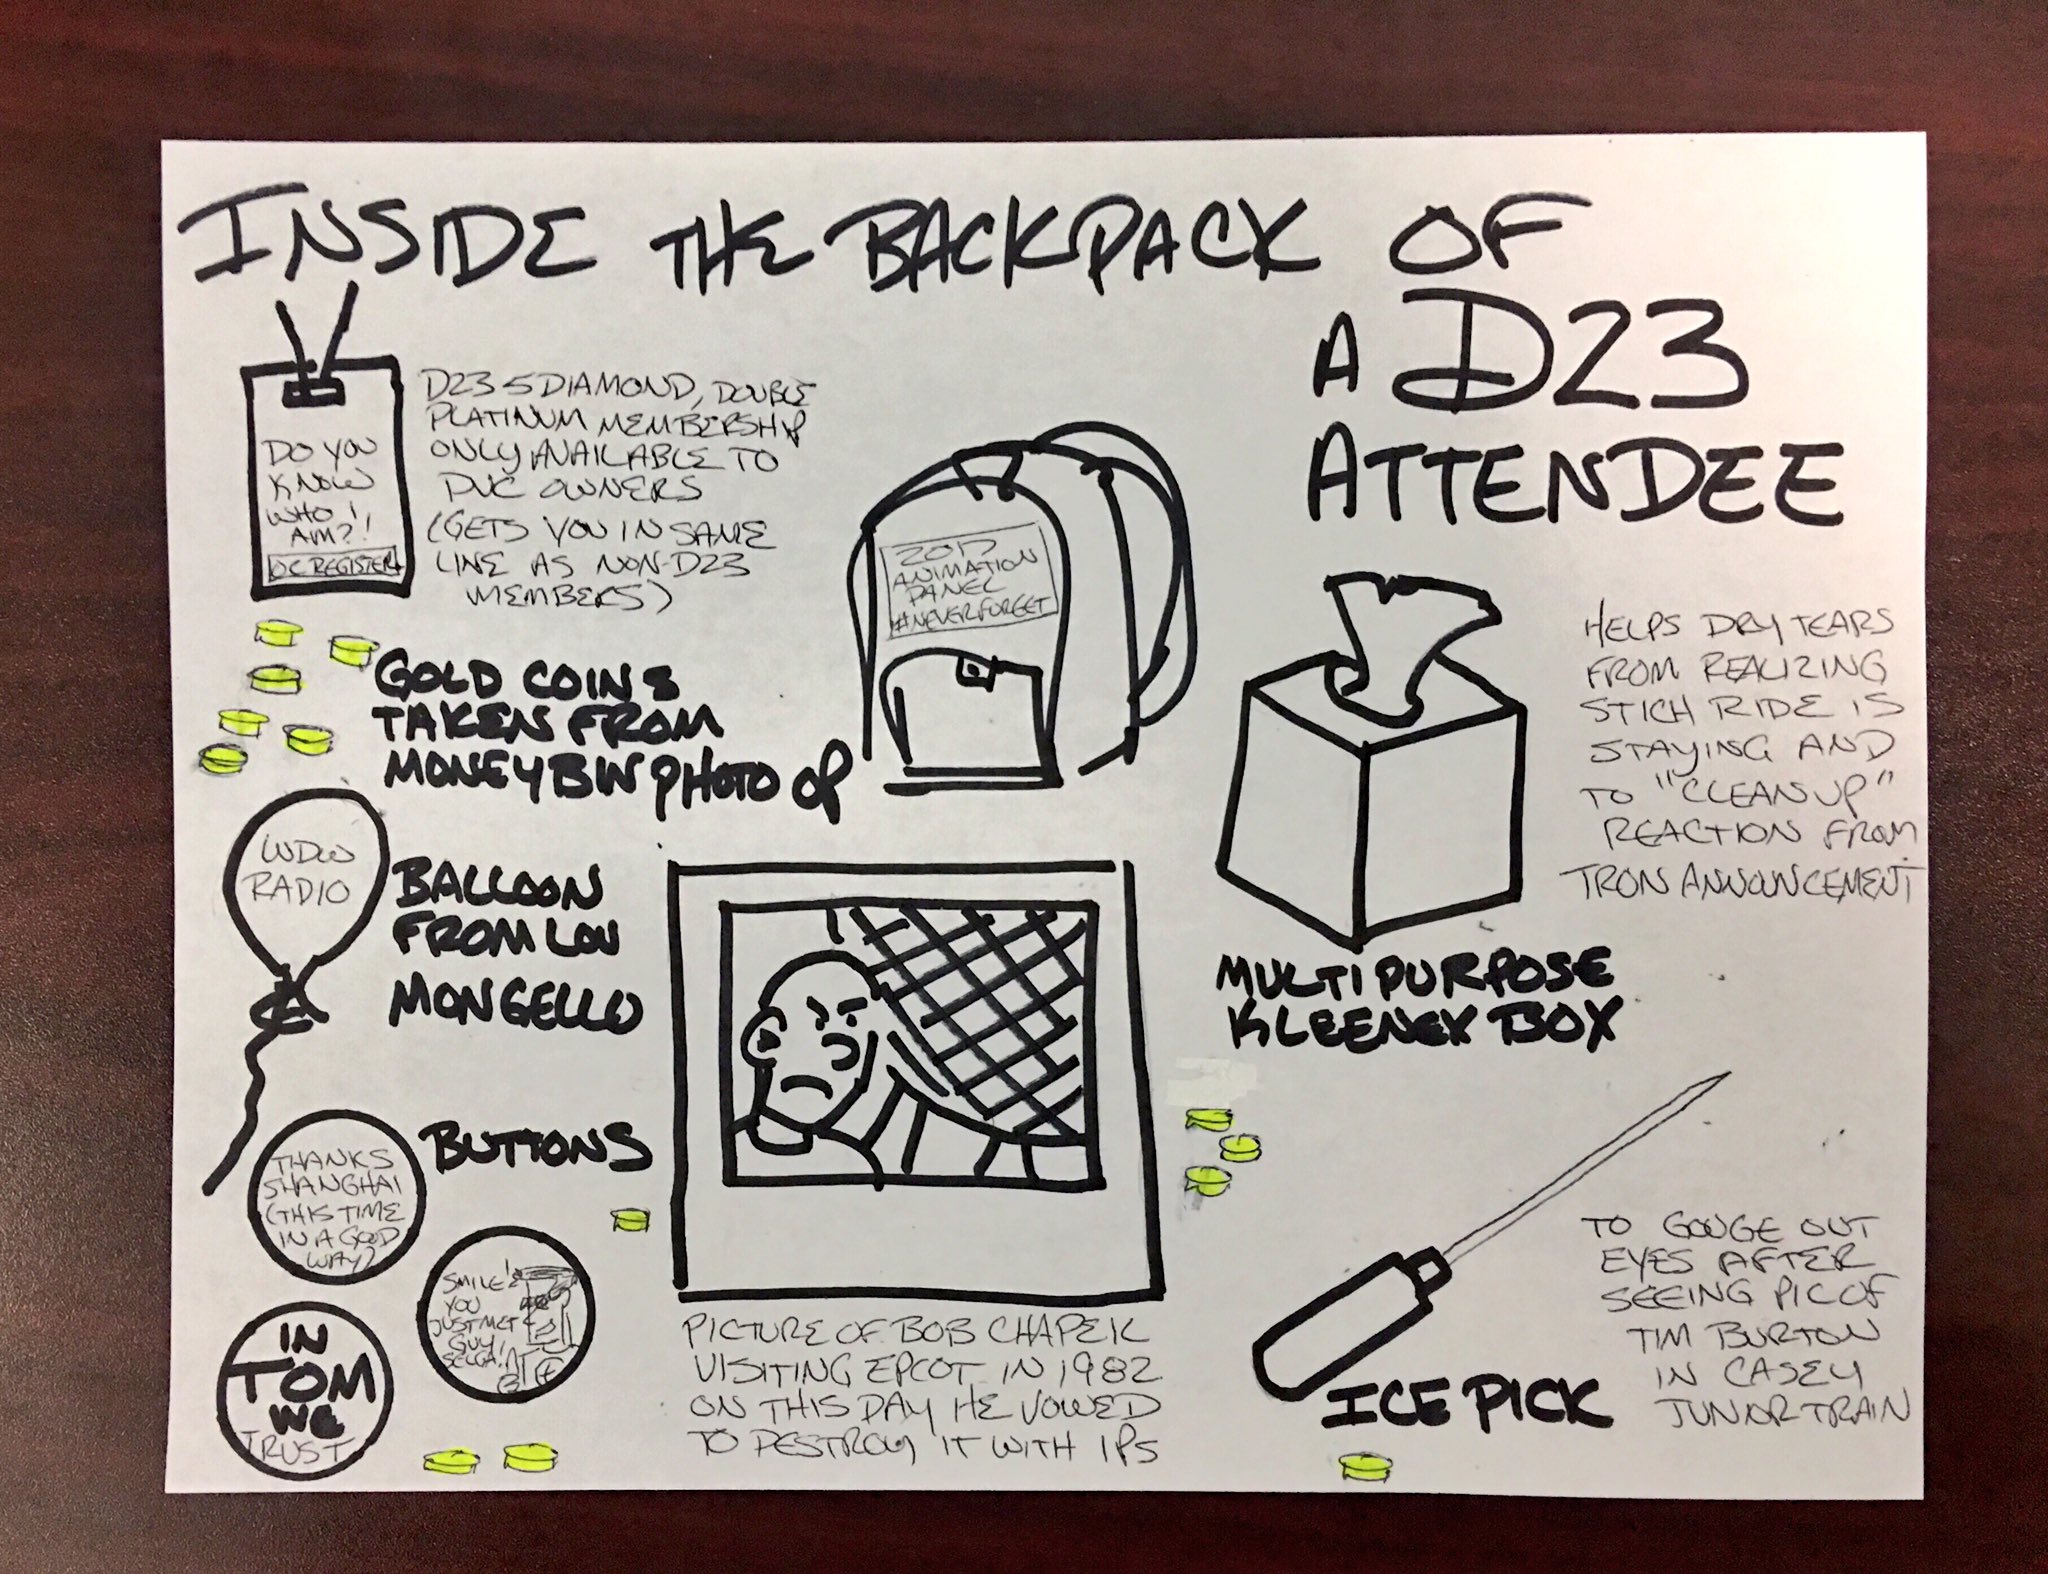 INSIDE THE BACKPACK OF
A D23
ATTENDEE
DO YOU
KNOW
WHO I
AM?!
OC REGISTER
D23 5 DIAMOND, DOUBLE
PLATINUM MEMBERSHIP
ONLY AVAILABLE TO
DVC OWNERS
(GETS YOU IN SAME
LINE AS NON-D23
MEMBERS)
2017
ANIMATION
PANEL
#NEVERFORGET
GOLD COINS
TAKEN FROM
MONEYBIN PHOTO OP
HELPS DRY TEARS
FROM REALIZING
STICH RIDE IS
STAYING AND
TO "CLEAN UP"
REACTION FROM
TRON ANNOUNCEMENT
MULTIPURPOSE
KLEENEX BOX
WDW
RADIO
BALLOON
FROM LOU
MONGELLO
BUTTONS
THANKS
SHANGHAI
(THIS TIME
IN A GOOD
WAY)
SMILE!
YOU
JUST MET
GUY
SELGA!
IN
TOM
WE
TRUST
PICTURE OF BOB CHAPEK
VISITING EPCOT IN 1982
ON THIS DAY HE VOWED
TO DESTROY IT WITH IPS
TO GOUGE OUT
EYES AFTER
SEEING PIC OF
TIM BURTON
IN CASEY
JUNIOR TRAIN
ICE PICK